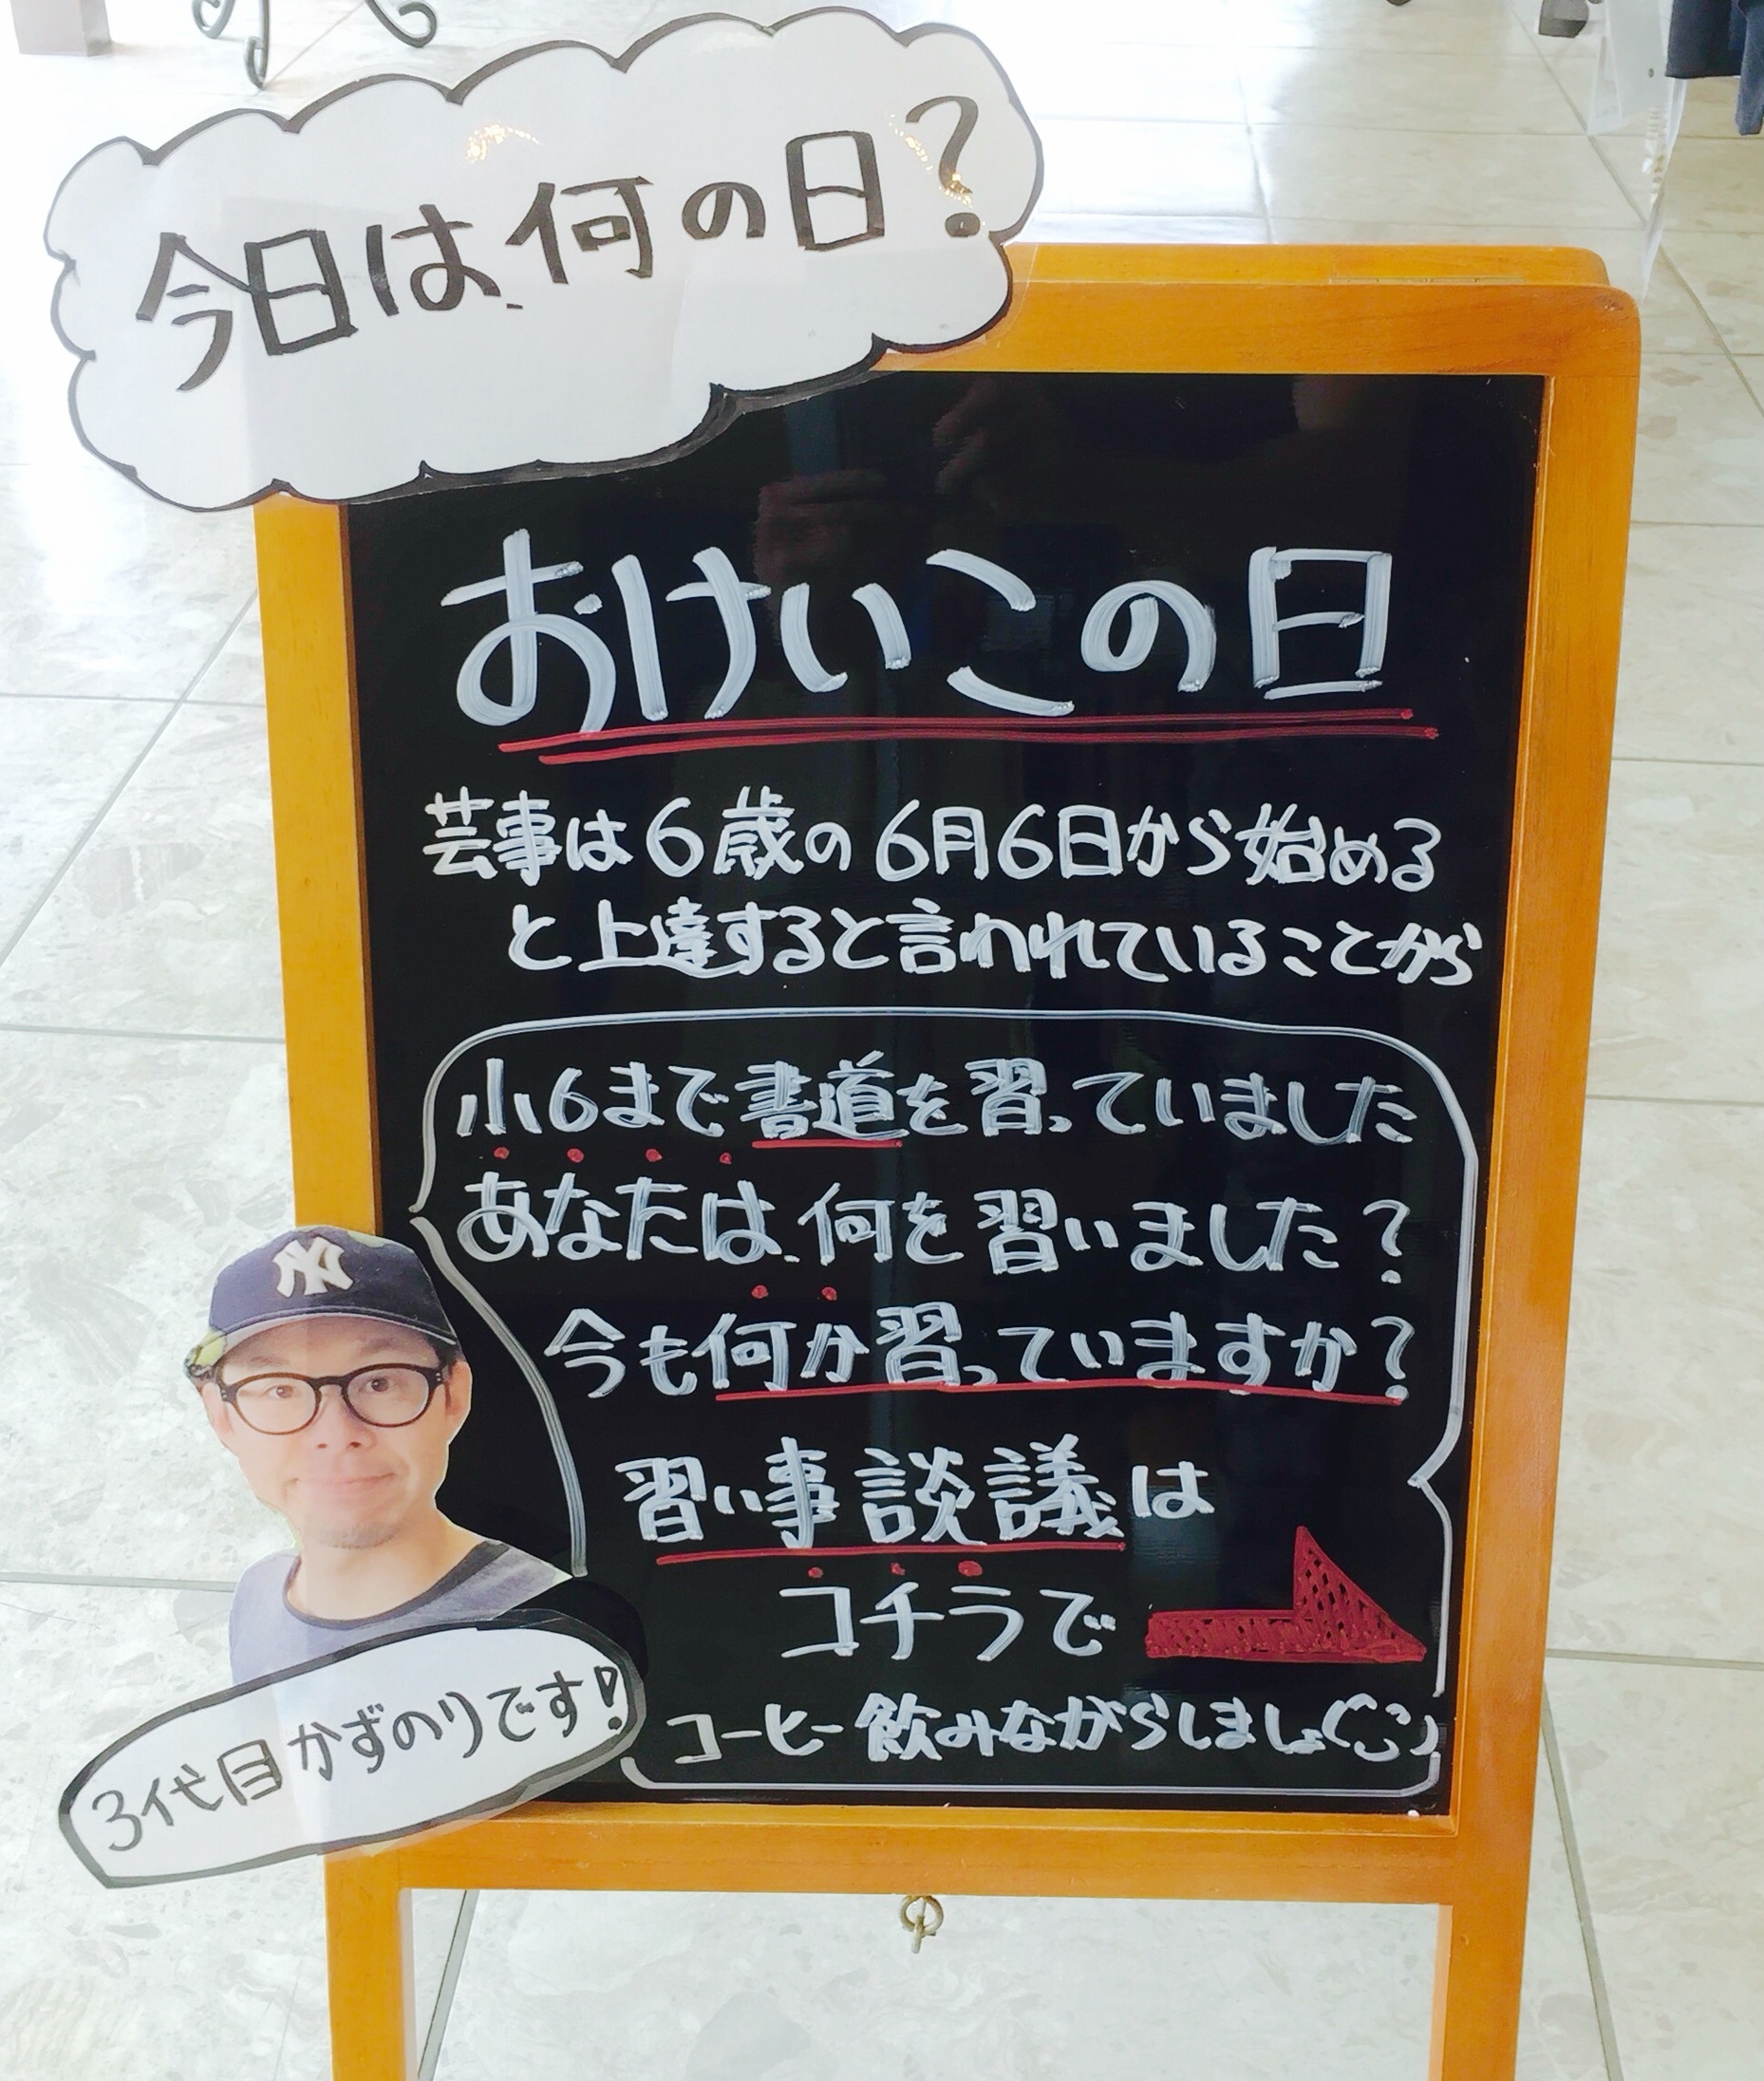 今日は何の日?
おけいこの日
芸事は6歳の6月6日から始める
と上達すると言われていることから
小6まで書道を習っていました
あなたは何を習いました?
今も何か習っていますか?
習い事談議は
コチラで
コーヒー飲みながらしましょ
3代目かずのりです!
NY